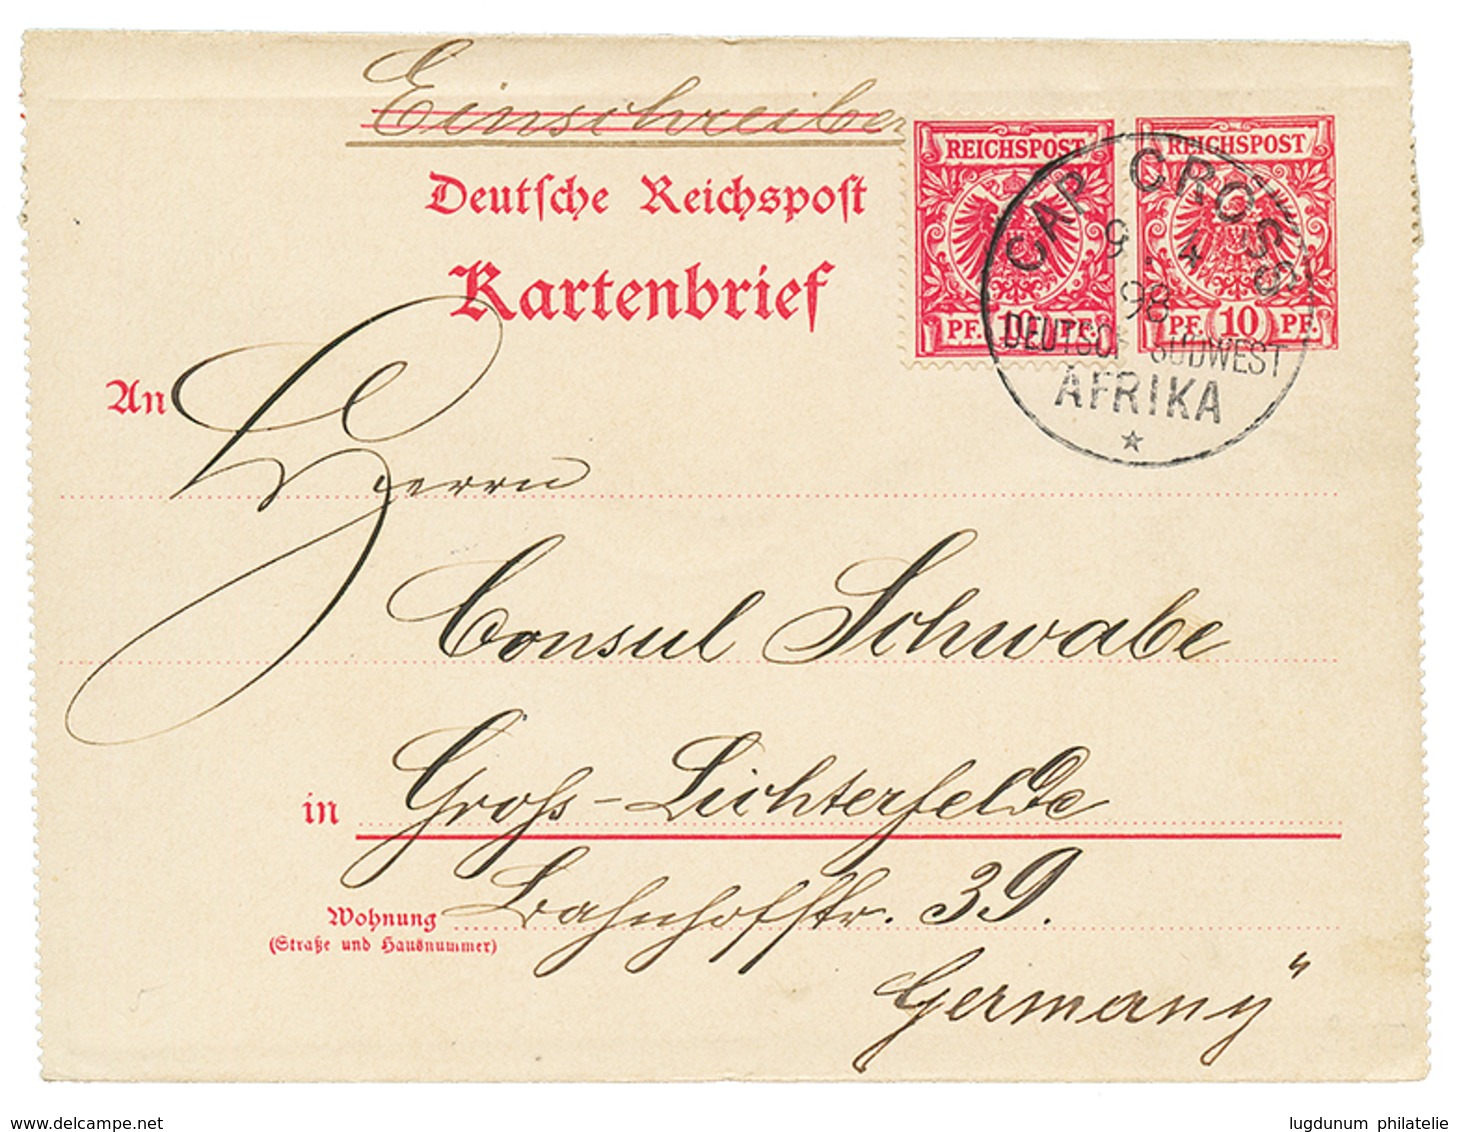 Einschreiben
REICHSPOST
REICHSPOST
Deutsche Reichspost
Kartenbrief
PF. 10 PF.
PF. 10 PF.
CAP CROSS
9 4
98
DEUTSCH SÜDWEST
AFRIKA
An
Herrn
Consul Schwabe
in Gross-Lichterfelde
Wohnung
(Straße und Hausnummer)
Bahnhofstr. 39.
Germany"
www.delcampe.net
lugdunum philatelie